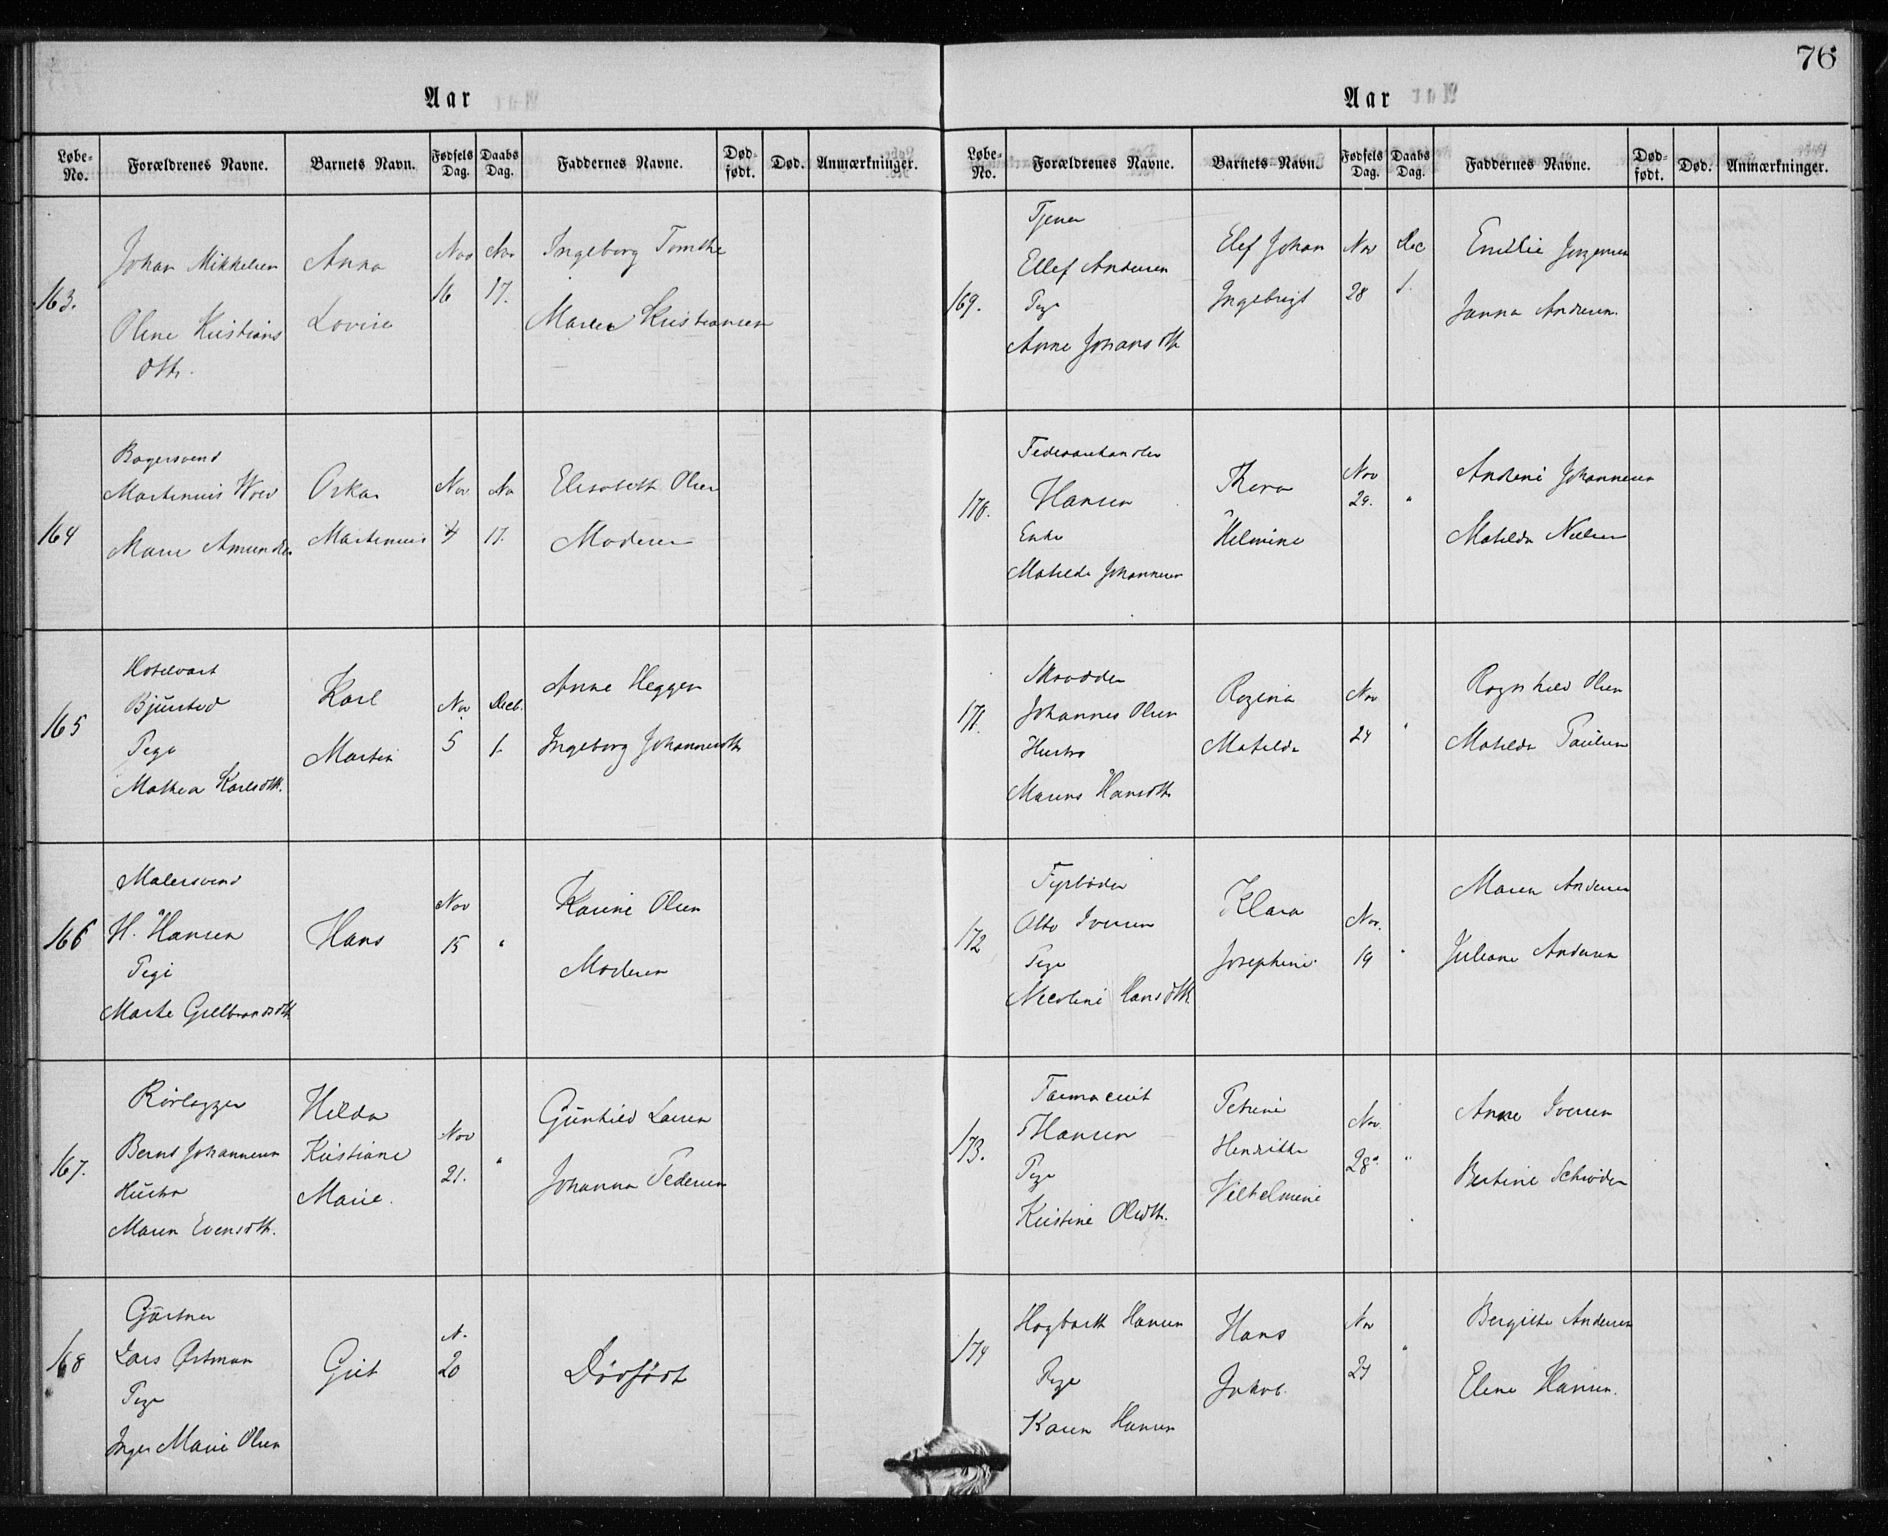 76
Aar
Løbe-No. Forældrenes Navne. Barnets Navn. Fødsels Dag. Daabs Dag. Faddernes Navne. Død-født. Død. Anmærkninger.
163. Johan Mikkelsen
Oline Kristians
dtt.
Anna
Lovise
Nov 16
Nov 17.
Ingeborg
Maren Kristiansen
164
Bagersvend
Martinius
Marie Amundsen
Oskar
Martinius
Nov 4
No 17.
Elisabeth Olsen
Moderen
165
Hotelvært
Bjurstad
Pige
Mathea Karlsdtt.
Karl
Martin
Nov 5
Decb. 1.
Anne Heggen
Ingeborg Johannesdtt
166
Malersvend
H. Hansen
Pige
Marte Gulbrandsdtt
Hans
Nov 15
"
Karine Olsen
Moderen
167.
Rørlægger
Bernt Johannesen
Hustro
Maren Evensdtt.
Hilda
Kristiane
Marie.
Nov 21.
"
Gunhild Larsen
Johanna Pedersen
168
Gartner
Lars Østman
Pige
Inger Marie Olsen
Gut
N. 20
Dødfødt
Aar
Løbe-No. Forældrenes Navne. Barnets Navn. Fødsels Dag. Daabs Dag. Faddernes Navne. Død-født. Død. Anmærkninger.
169.
Tjener
Ellef Andersen
Pige
Anne Johansdtt
Elef Johan
Ingebrigt
Nov 28
Dec 1.
Emilie Jørgensen
Janna Andersen.
170.
Fedevarehandler
Hansen
Enke
Matilde Johannesen
Thora
Helmine
Nov 29.
"
Andrine Johannesen
Matilda Nielsen
171.
Skrædder
Johannes Olsen
Hustro
Maren Hansdtt
Regina
Matilda
Nov 24
"
Ragnhild Olsen
Matilda Paulsen
172
Fyrbøder
Otto Iversen
Pige
Nicoline Hansdtt
Klara
Josephine.
Nov. 19
"
Maren Andersen
Juliane Andersen
173.
Farmaceut
Hansen
Pige
Kristine Olsdtt.
Petrine
Henriette
Vilhelmine
Nov. 28
"
Anne Iversen
Bertine Schrøder
174
Hagbarth Hansen
Pige
Karen Hansen
Hans
Jakob.
Nov 27
"
Bergitte Andersen
Elene Hansen.